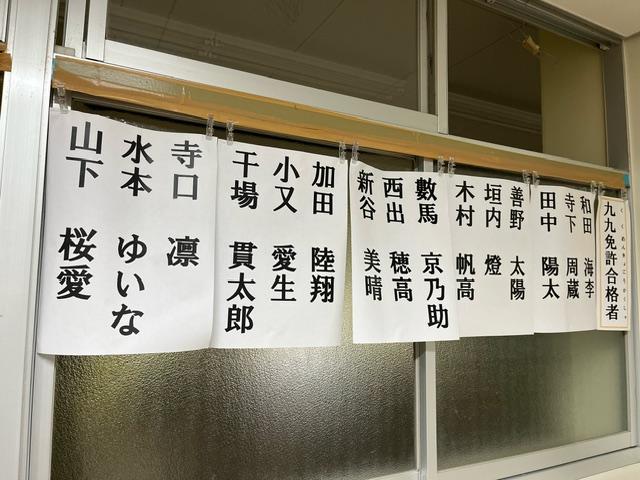 九九免許合格者
くくめんきょごうかくしゃ
和田 海李
寺下 周蔵
田中 陽太
善野 太陽
垣内 燈
木村 帆高
數馬 京乃助
西出 穂高
新谷 美晴
加田 陸翔
小又 愛生
干場 貫太郎
寺口 凛
水本 ゆいな
山下 桜愛